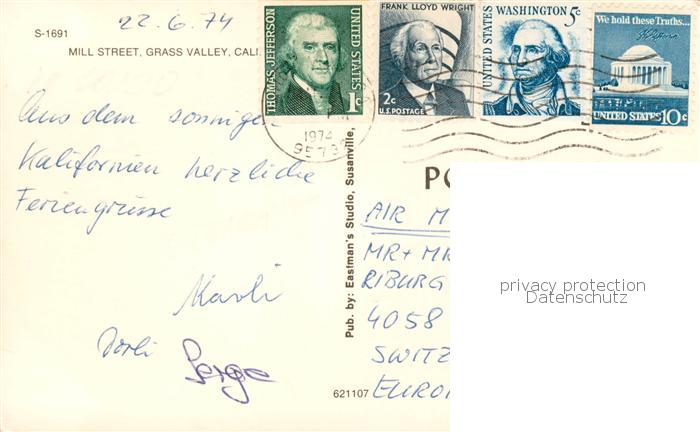 S-1691
22.6.74
MILL STREET, GRASS VALLEY, CALI
Aus dem sonnigen
Kalifornien herzliche
Feriengrüsse
Dorli
Serge
THOMAS JEFFERSON
UNITED STATES
1c
FRANK LLOYD WRIGHT
2c
U.S. POSTAGE
UNITED STATES
WASHINGTON 5c
We hold these Truths...
UNITED STATES 10c
1974
Pub. by: Eastman's Studio, Susanville,
PO
AIR M
MR + MR
RIBURG
4058
SWITZ
EURO
621107
privacy protection
Datenschutz